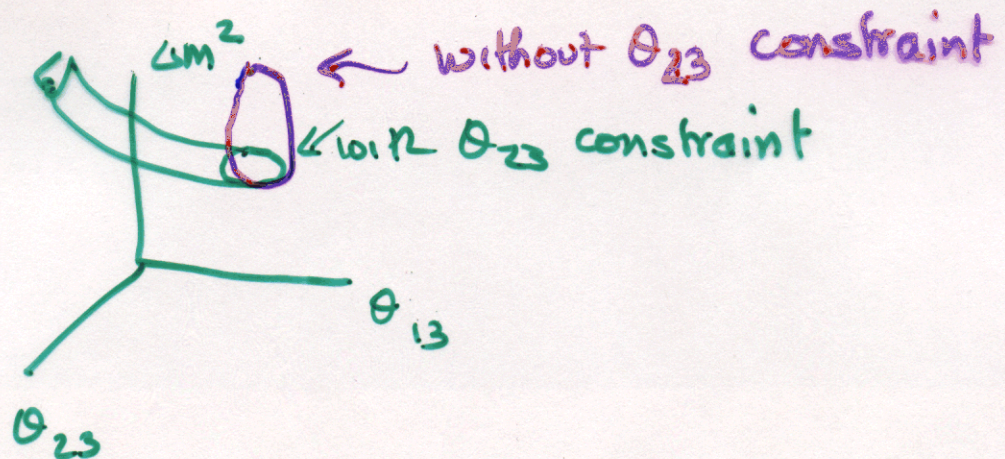 Δm²
← without θ₂₃ constraint
← with θ₂₃ constraint
θ₁₃
θ₂₃